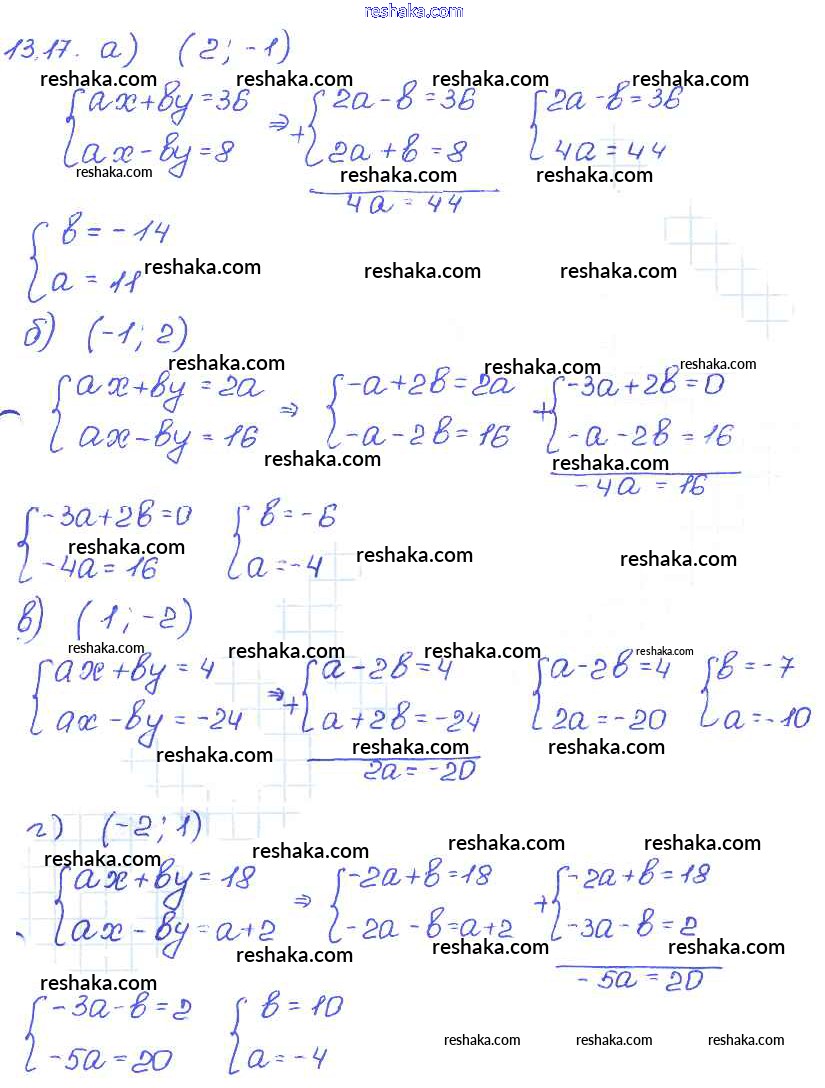 reshaka.com
13.17. а) (2; -1)
reshaka.com reshaka.com reshaka.com reshaka.com
{ax+by=36 ⇒ +{2a-b=36 {2a-b=36
{ax-by=8 {2a+b=8 {4a=44
reshaka.com reshaka.com reshaka.com
4a=44
{b=-14
{a=11
reshaka.com reshaka.com reshaka.com
б) (-1; 2)
reshaka.com reshaka.com reshaka.com
{ax+by=2a ⇒ {-a+2b=2a +{-3a+2b=0
{ax-by=16 {-a-2b=16 {-a-2b=16
reshaka.com reshaka.com
-4a=16
{-3a+2b=0 {b=-6
reshaka.com reshaka.com reshaka.com
{-4a=16 {a=-4
в) (1; -2)
reshaka.com reshaka.com reshaka.com reshaka.com
{ax+by=4 ⇒ +{a-2b=4 {a-2b=4 {b=-7
{ax-by=-24 {a+2b=-24 {2a=-20 {a=-10
reshaka.com reshaka.com reshaka.com
2a=-20
г) (-2; 1)
reshaka.com reshaka.com reshaka.com reshaka.com
{ax+by=18 ⇒ {-2a+b=18 +{-2a+b=18
{ax-by=a+2 {-2a-b=a+2 {-3a-b=2
reshaka.com reshaka.com reshaka.com
-5a=20
reshaka.com
{-3a-b=2 {b=10
{-5a=20 {a=-4
reshaka.com reshaka.com reshaka.com